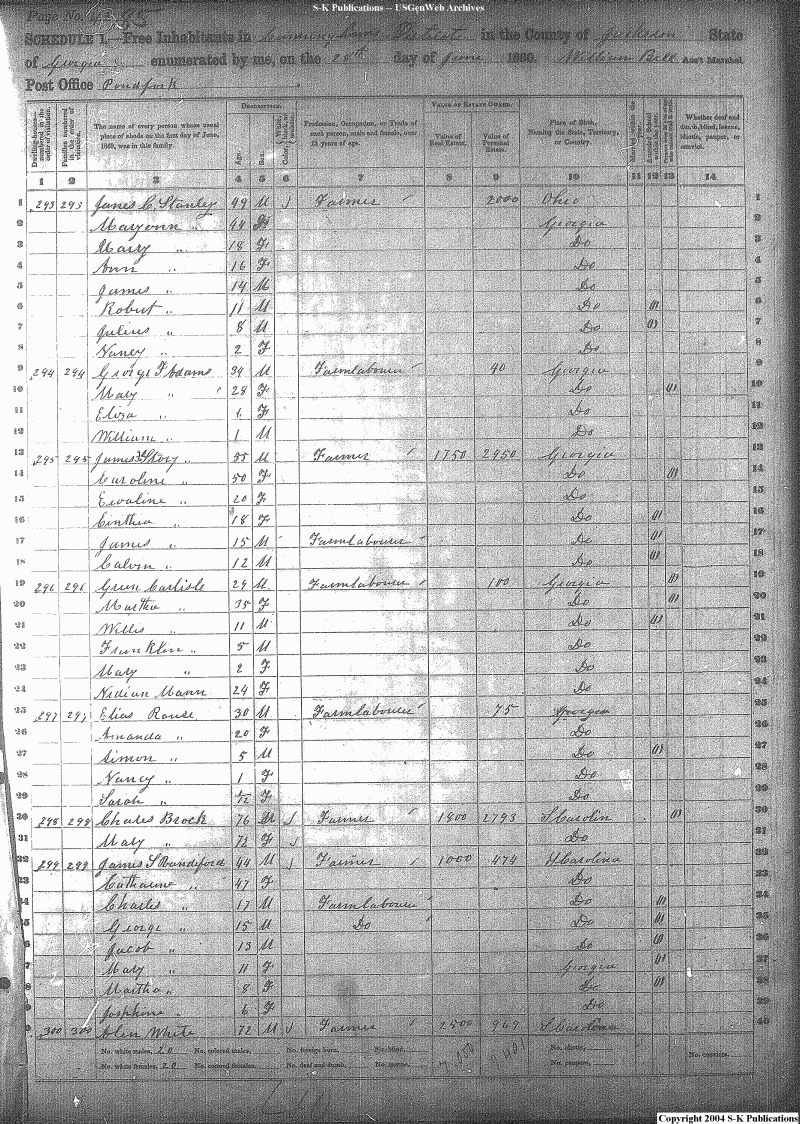 S-K Publications -- USGenWeb Archives
Page No. 95
SCHEDULE 1.—Free Inhabitants in District in the County of Jackson State
of Georgia enumerated by me, on the 20th day of June 1860. William Bell Ass't Marshal.
Post Office Pondfork
DESCRIPTION. VALUE OF ESTATE OWNED.
Dwelling-houses—numbered in the order of visitation.
Families numbered in the order of visitation.
The name of every person whose usual place of abode on the first day of June, 1860, was in this family.
Age.
Sex.
Color,
Profession, Occupation, or Trade of each person, male and female, over 15 years of age.
Value of Real Estate.
Value of Personal Estate.
Place of Birth, Naming the State, Territory, or Country.
Married within the year.
Attended School within the year.
Whether deaf and dumb, blind, insane, idiotic, pauper, or convict.
1 2 3 4 5 6 7 8 9 10 11 12 13 14
1 293 293 James C Stanley 49 M Farmer 2000 Ohio 1
2 Maryann " 44 F Georgia 2
3 Mary " 18 F Do 3
4 Ann " 16 F Do 4
5 James " 14 M Do 5
6 Robert " 11 M Do (1) 6
7 Julius " 8 M Do (1) 7
8 Nancy " 2 F Do 8
9 294 294 George F Adams 34 M Farmlabourer 90 Georgia 9
10 Mary " 28 F Do (1) 10
11 Eliza " F Do 11
12 William " 1 M Do 12
13 295 295 James Story " 55 M Farmer 1750 2950 Georgia 13
14 Caroline " 50 F Do (1) 14
15 Evaline " 20 F Do 15
16 Cinthea " 18 F Do (1) 16
17 James " 15 M Farmlabourer Do (1) 17
18 Calvin " 12 M Do (1) 18
19 296 296 Green Carlisle 29 M Farmlabourer 100 Georgia (1) 19
20 Martha " 35 F Do (1) 20
21 Willis " 11 M Do (1) 21
22 Franklin " 5 M Do 22
23 Mary " 2 F Do 23
24 Mann 24 F Do 24
25 297 297 Elias Rouse 30 M Farmlabourer 75 Georgia 25
26 Amanda " 20 F Do 26
27 Simon " 5 M Do (1) 27
28 Nancy " 1 F Do 28
29 Sarah " F Do 29
30 298 298 Charles Brock 76 M Farmer 1800 2793 S Carolin (1) 30
31 Mary " 72 F Do 31
32 299 299 James S 44 M Farmer 1000 474 N Carolina 32
33 Catharine " 47 F Do 33
34 Charles " 17 M Farmlabourer Do (1) 34
35 George " 15 M Do Do (1) 35
36 Jacob " 13 M Do (1) 36
37 Mary " 11 F Georgia (1) 37
38 Martha " 8 F Do (1) 38
39 Josephine " 6 F Do 39
40 300 300 White 72 M Farmer 2500 969 S Carolina 40
No. white males, 20 No. colored males, No. foreign born, No. blind, No. idiotic, No. convicts,
No. white females, 20 No. colored females, No. deaf and dumb, No. insane, No. paupers,
Copyright 2004 S-K Publications